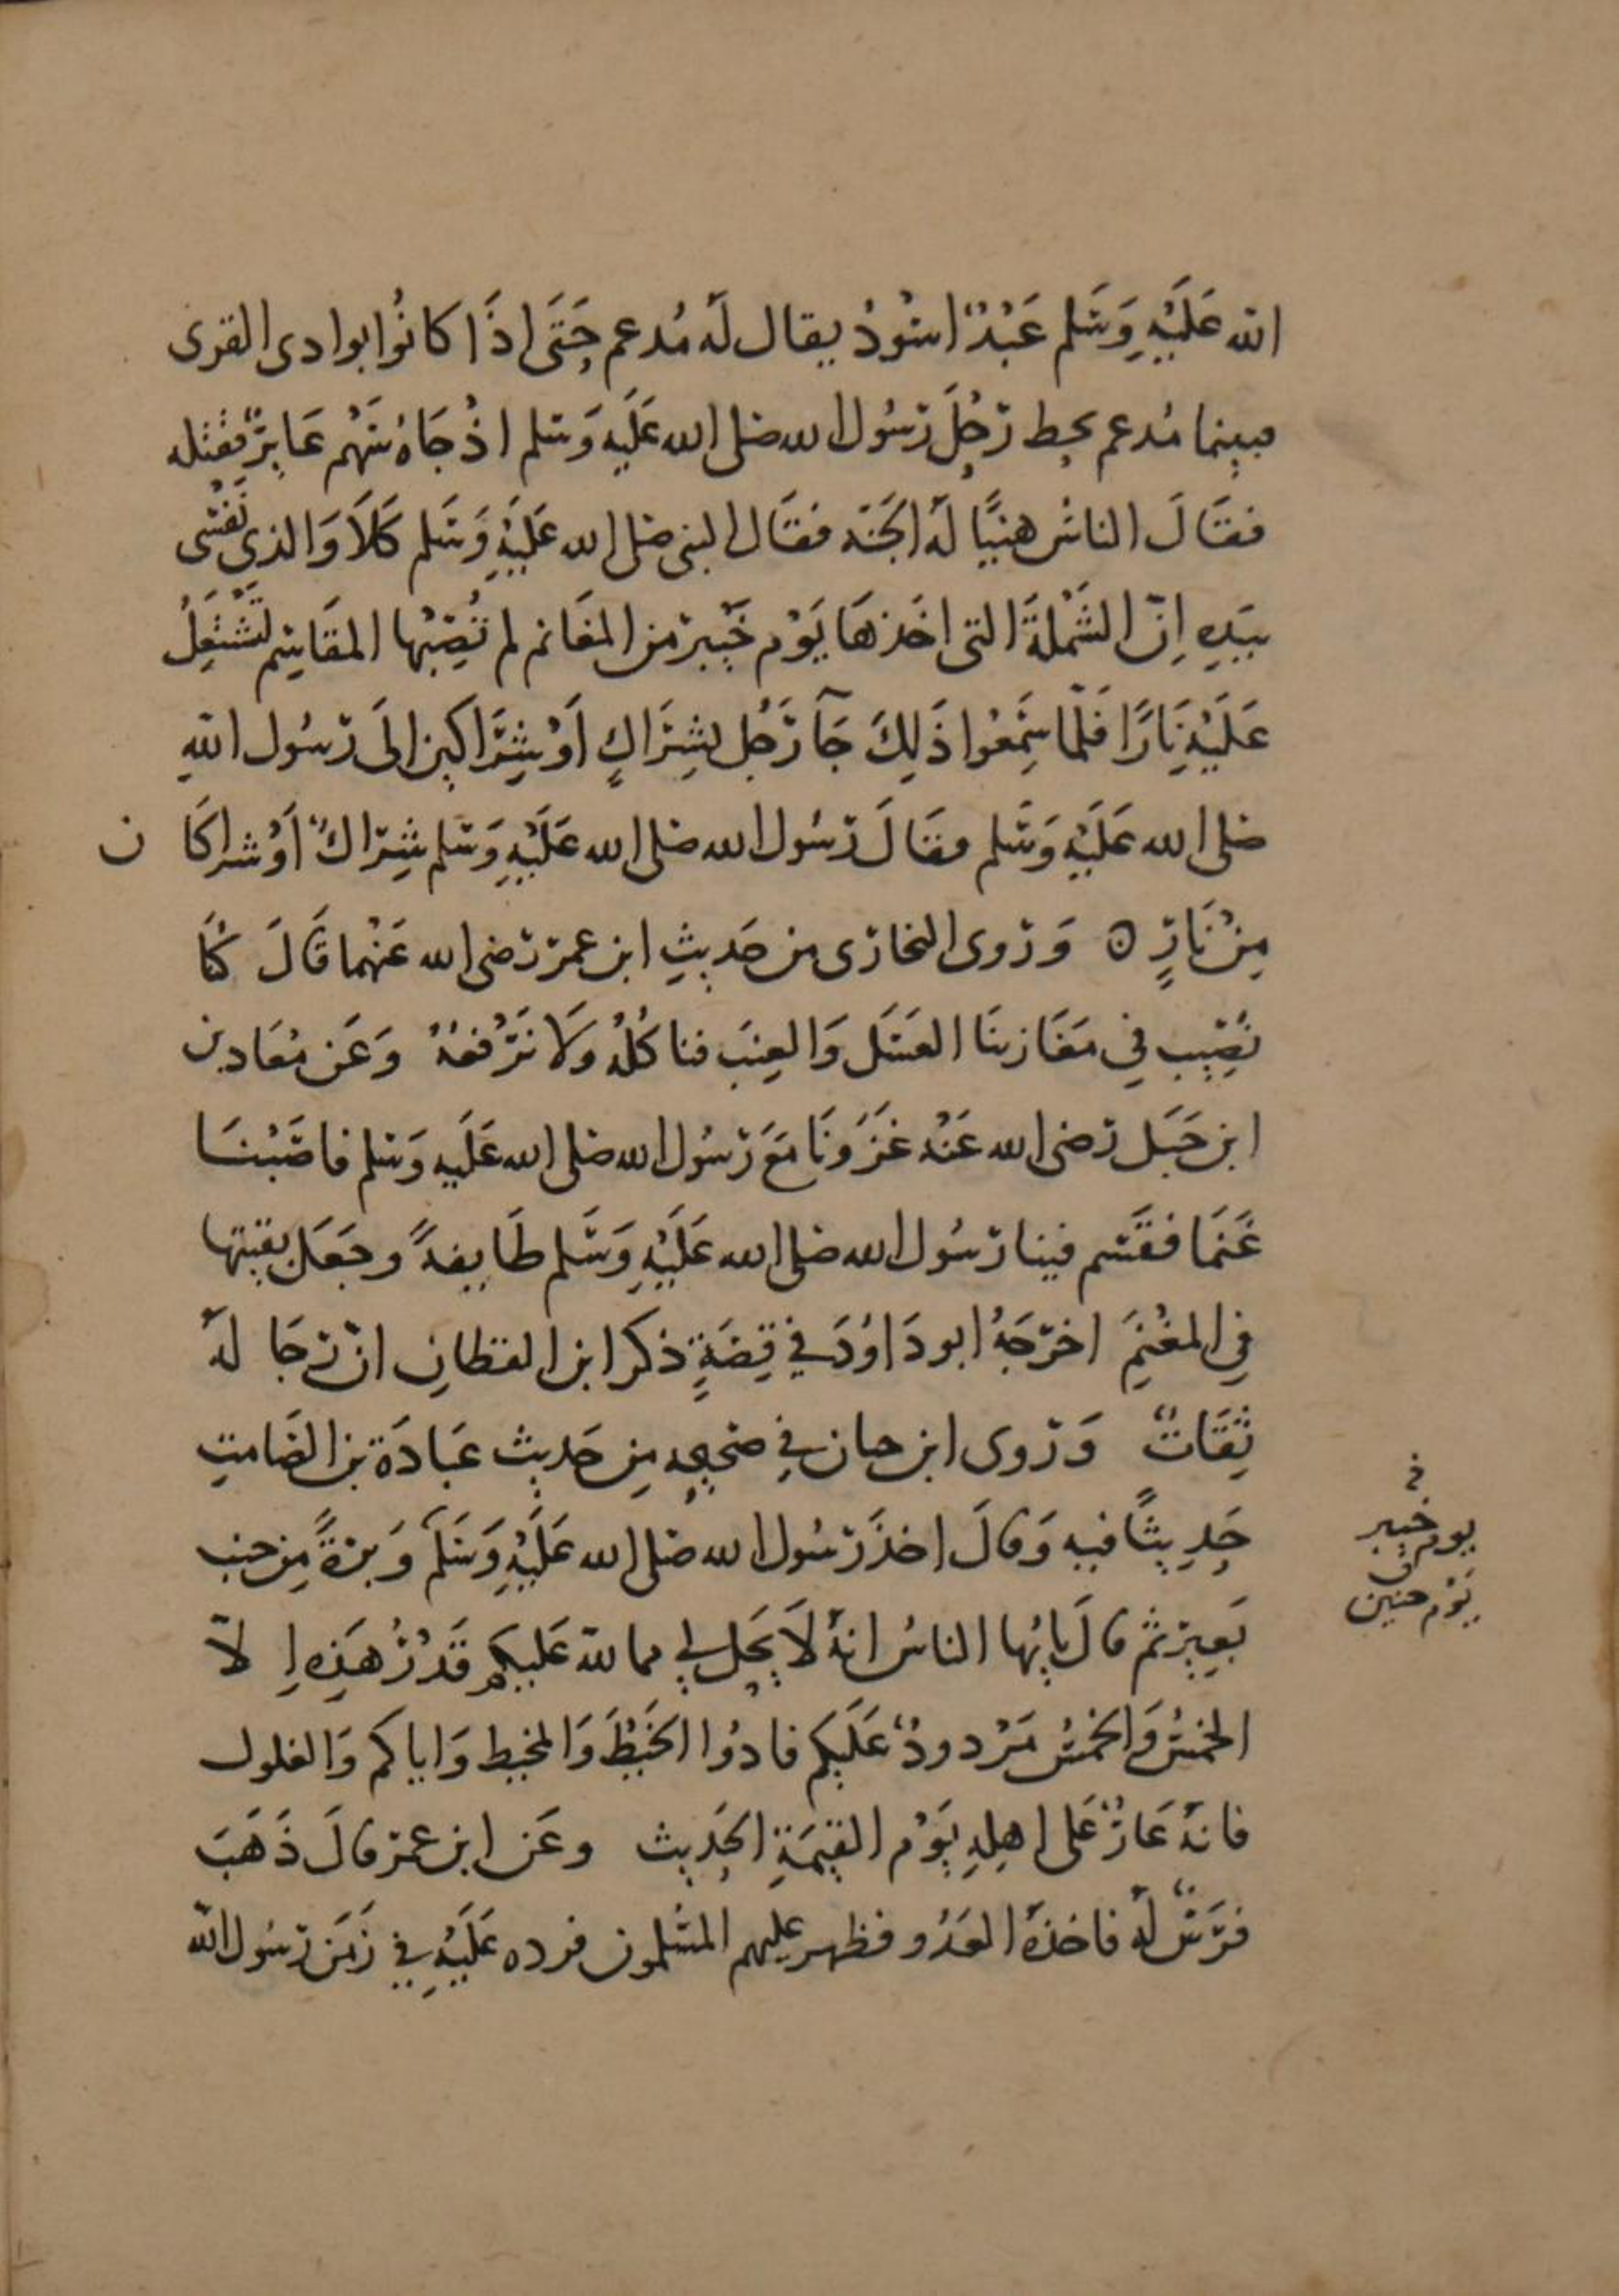 الله عَلَيْهِ وَسَلم عَبْدٌ اسْوَدُ يقال لَهُ مُدعم حَتَى اذَا كانُوا بوادى القرى
فبينما مُدعم يحط رَحْلَ رَسُول الله صلى الله عَلَيه وَسَلم اذْ جَاهُ سَهْم عَايِرٌ فقتله
فقَالَ الناسُ هنيًا لَهُ الجَنه فقَال النبى صلى الله عَلَيْهِ وَسَلم كَلَا وَالذى نَفْسى
بيَدِهِ اِنّ الشَمْلَةَ التى اخَذهَا يَوْم خَيْبر من المغَانم لم تُصِبْهَا المقَاسِم لتَشْتَعِلُ
عَلَيْهِ نَارًا فَلَمّا سَمِعُوا ذَلِكَ جَآ رَجُل بشِرَاكٍ اَوْ شِرَاكين الَى رَسُول اللهِ
صلى الله عَلَيْهِ وَسَلم فقَالَ رَسُول الله صلى الله عَلَيْهِ وَسَلم شِرَاكٌ اَوْ شراكَا ن
مِنْ نَارٍ ه وَرَوى البخارى من حَديثِ ابن عمر رَضى الله عَنْهما قَالَ كنَا
نُصِيب فِي مَغَازينَا العَسَل وَالعِنَب فناكُلُهُ وَلَا نَرْفعُهُ وَعَن مُعَاد بن
ابن جَبَل رَضى الله عَنْه غَزَوْنَا مَعَ رَسُول الله صلى الله عَلَيه وَسَلم فاصَبْنَا
غَنَمَا فقَسَم فينا رَسُول الله صلى الله عَلَيْهِ وَسَلم طَايفةً وجَعَل بقيتها
فِي المغْنَمِ اخرَجَهُ ابو دَاوُدَ فِي قِصَةٍ ذكر ابن القطانِ انّ رجَا لَهُ
ثِقَاتٌ وَرَوى ابن حبان فِي صحيحِه مِن حَديث عبَادَة بن الصَامتِ
حَدِيثًا فيه وَقالَ اخذَ رَسُول الله صلى الله عَلَيْهِ وَسَلَّمَ وَبرَةً مِن جنب
بَعِيرٍ ثم قالَ يايُها الناسُ انهُ لَا يَحِل لِي مما الله عَليكم قَدْرُ هَذِهِ اِ لاّ
الخمسُ وَالخمسُ مَرْدودٌ عَلَيكم فادُوا الخَيْطَ وَالمخيط وَاياكم وَالغلول
فانهُ عَارٌ عَلى اهلِهِ يَوْم القِيمَةِ الحَدِيث وعَن ابن عمر قالَ ذَهَبَ
فرَسٌ لَهُ فاخذهُ العَدُو فظهر عليهم المسْلمون فرده عَلَيْهِ فِي زَمَن رَسُول الله
في
يوم خيبر
ن
يَوْم حنين